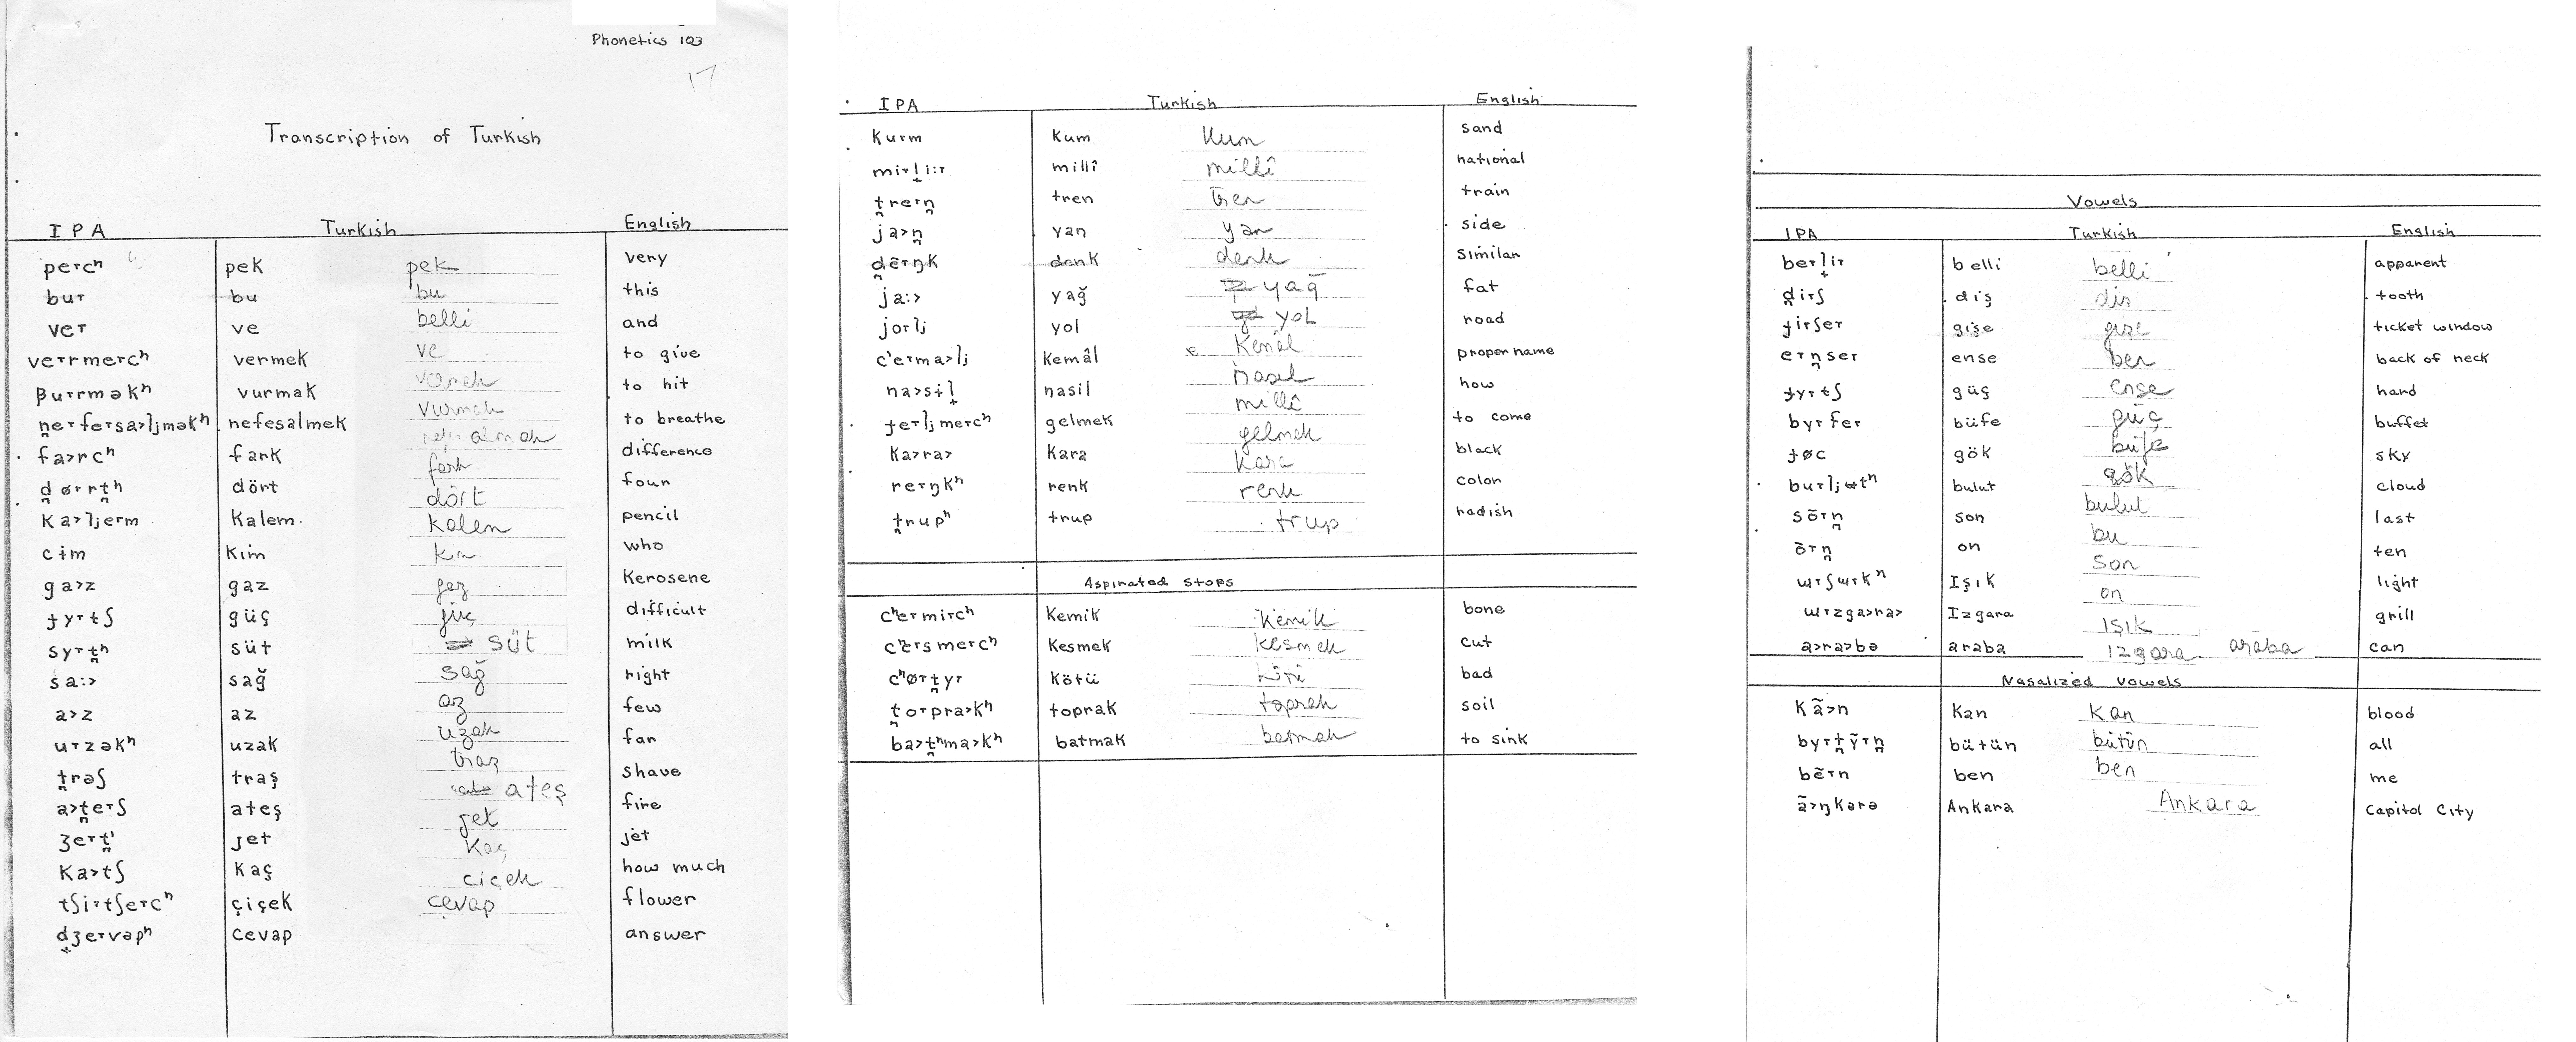 Phonetics 103
17
Transcription of Turkish
IPA Turkish English
pe˕cʰ pek pek very
bu˕ bu bu this
ve˕ ve belli and
ve˕rme˕cʰ vermek ve to give
βu˕rməkʰ vurmak vermek to hit
n̪e˕fe˕sa˃ljməkʰ nefesalmek vurmak to breathe
fa˃rcʰ fark almak difference
d̪ø˕rt̪ʰ dört fark four
ka˃lje˕m kalem. dört pencil
cɨm kim kalem who
ga˃z gaz kim kerosene
ɟy˕tʃ güç gaz difficult
sy˕t̪ʰ süt güç milk
sa:˃ sağ süt right
a˃z az sağ few
u˕zəkʰ uzak az far
t̪rəʃ traş uzak shave
a˃t̪e˕ʃ ateş traş fire
ʒe˕t̪' jet ateş jet
ka˃tʃ kaç jet how much
tʃi˕tʃe˕cʰ çiçek kaç flower
dʒe˕vəpʰ cevap çiçek answer
cevap
IPA Turkish English
ku˕m kum kum sand
mi˕l̟i:˕ millî millî national
t̪re˕n̪ tren tren train
ja˃n̪ yan yan side
d̪ẽ˕ŋk denk denk similar
ja:˃ yağ yağ fat
jo˕lj yol yol road
c'e˕ma˃lj kemâl Kemâl proper name
na˃sɨl̟ nasil nasıl how
millî
ɟe˕ljme˕cʰ gelmek gelmek to come
ka˃ra˃ kara kara black
re˕ŋkʰ renk renk color
t̪rupʰ trup trup radish
Aspirated Stops
cʰe˕mi˕cʰ kemik kemik bone
cʰe˕sme˕cʰ kesmek kesmek cut
cʰø˕t̪yr kötü kötü bad
t̪o˕pra˃kʰ toprak toprak soil
ba˃t̪ʰma˃kʰ batmak batmak to sink
Vowels
IPA Turkish English
be˕l̟i˕ belli belli apparent
d̪i˕ʃ diş diş tooth
ɟi˕ʃe˕ gişe gişe ticket window
e˕n̪se˕ ense ben back of neck
ɟy˕tʃ güç ense hard
by˕fe˕ büfe güç buffet
ɟøc gök büfe sky
bu˕ljʉtʰ bulut gök cloud
sõ˕n̪ son bulut last
õ˕n̪ on bu ten
ɯ˕ʃɯ˕kʰ Işık son light
ɯ˕zga˃ra˃ Izgara on grill
ışık
a˃ra˃bə araba ızgara araba car
Nasalized vowels
kã˃n kan kan blood
by˕t̪ỹ˕n̪ bütün bütün all
bẽ˕n ben ben me
ã˃ŋkərə Ankara Ankara Capitol City